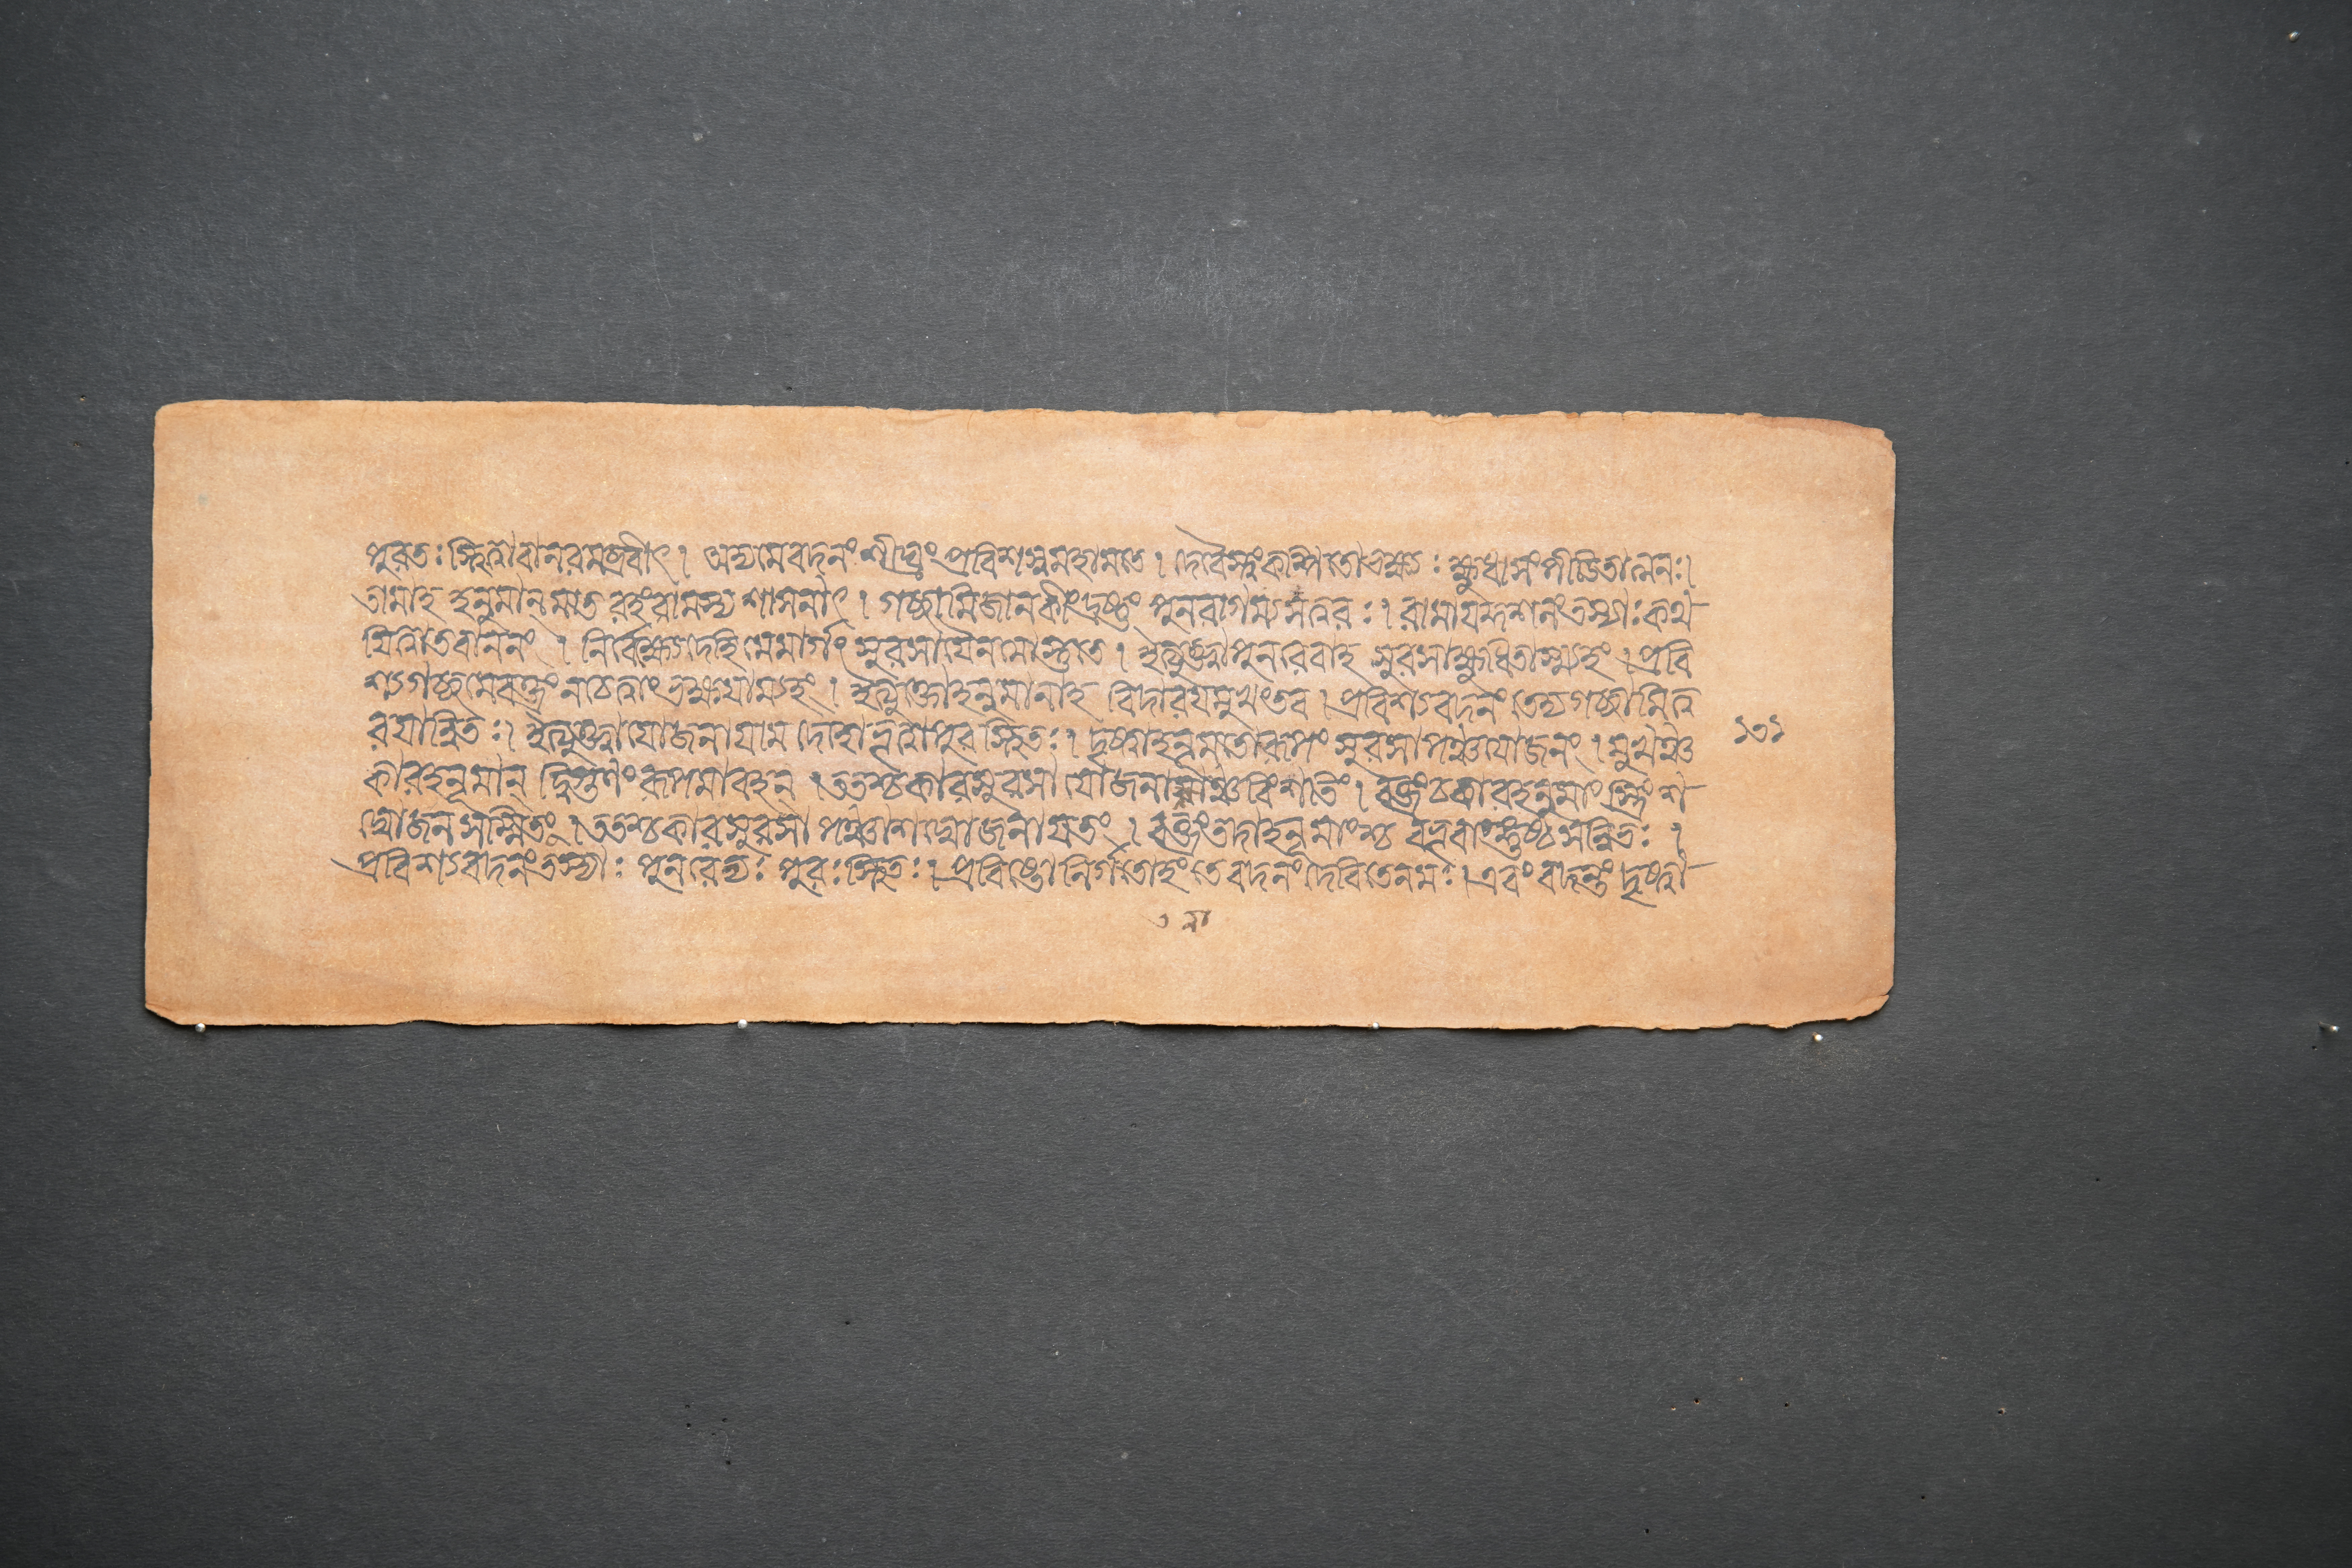 পুরতঃস্থিত্বাবানরমব্রবীৎ। অহ্যমেবদনং শীঘ্রং প্রবিশস্বমহামতে। দেবৈস্ত্বংকল্পিতোভক্ষ্যঃ ক্ষুধাসংপীডিতাত্মনঃ।
তামাহ হনুমান্মাতরহংরামস্য শাসনাৎ। গচ্ছামিজানকীংদ্রষ্টুং পুনরাগম্যসত্বরঃ। রামাযদর্শনংতস্যাঃকথ
যিত্বাতবাননং। নির্বেক্ষ্যেদেহিমেমার্গং সুরসাযৈনমোস্তুতে। ইত্যুক্ত্বাপুনরেবাহ সুরসাক্ষুধিতাস্ম্যহং। প্রবি
শ্যগচ্ছমেবক্ত্রং নচেত্বাং ভক্ষযাম্যহং। ইত্যুক্তোহনুমানাহ বিদারযমুখংতব। প্রবিশ্যবদনং তেদ্যগচ্ছামিত্ব
রযান্বিতঃ। ইত্যুক্ত্বাযোজনাযাম দেহোভূত্বাপুরস্থিতঃ। দৃষ্ট্বাহনূমতোরূপং সুরসাপঞ্চযোজনং। মুখঞ্চ
১৩১
কারহনূমান্ দ্বিগুণং রূপমাবহন্। ততশ্চকারসুরসা যোজনানাঞ্চবিংশতিং। বক্ত্রংচকারহনুমাং স্ত্রিংশ
দ্যোজনসম্মিতং। ততশ্চকারসুরসা পঞ্চাশদ্যোজনাযতং। বক্ত্রংতদাহনূমাংশ্চ বভূবাঙ্গুষ্ঠসন্নিভঃ।
প্রবিশ্যবদনংতস্যাঃ পুনরেত্যঃ পুরঃস্থিতঃ। প্রবিষ্টোনির্গতোহং তেবদনং দেবিতেনমঃ। এবং বদন্তং দৃষ্ট্বা